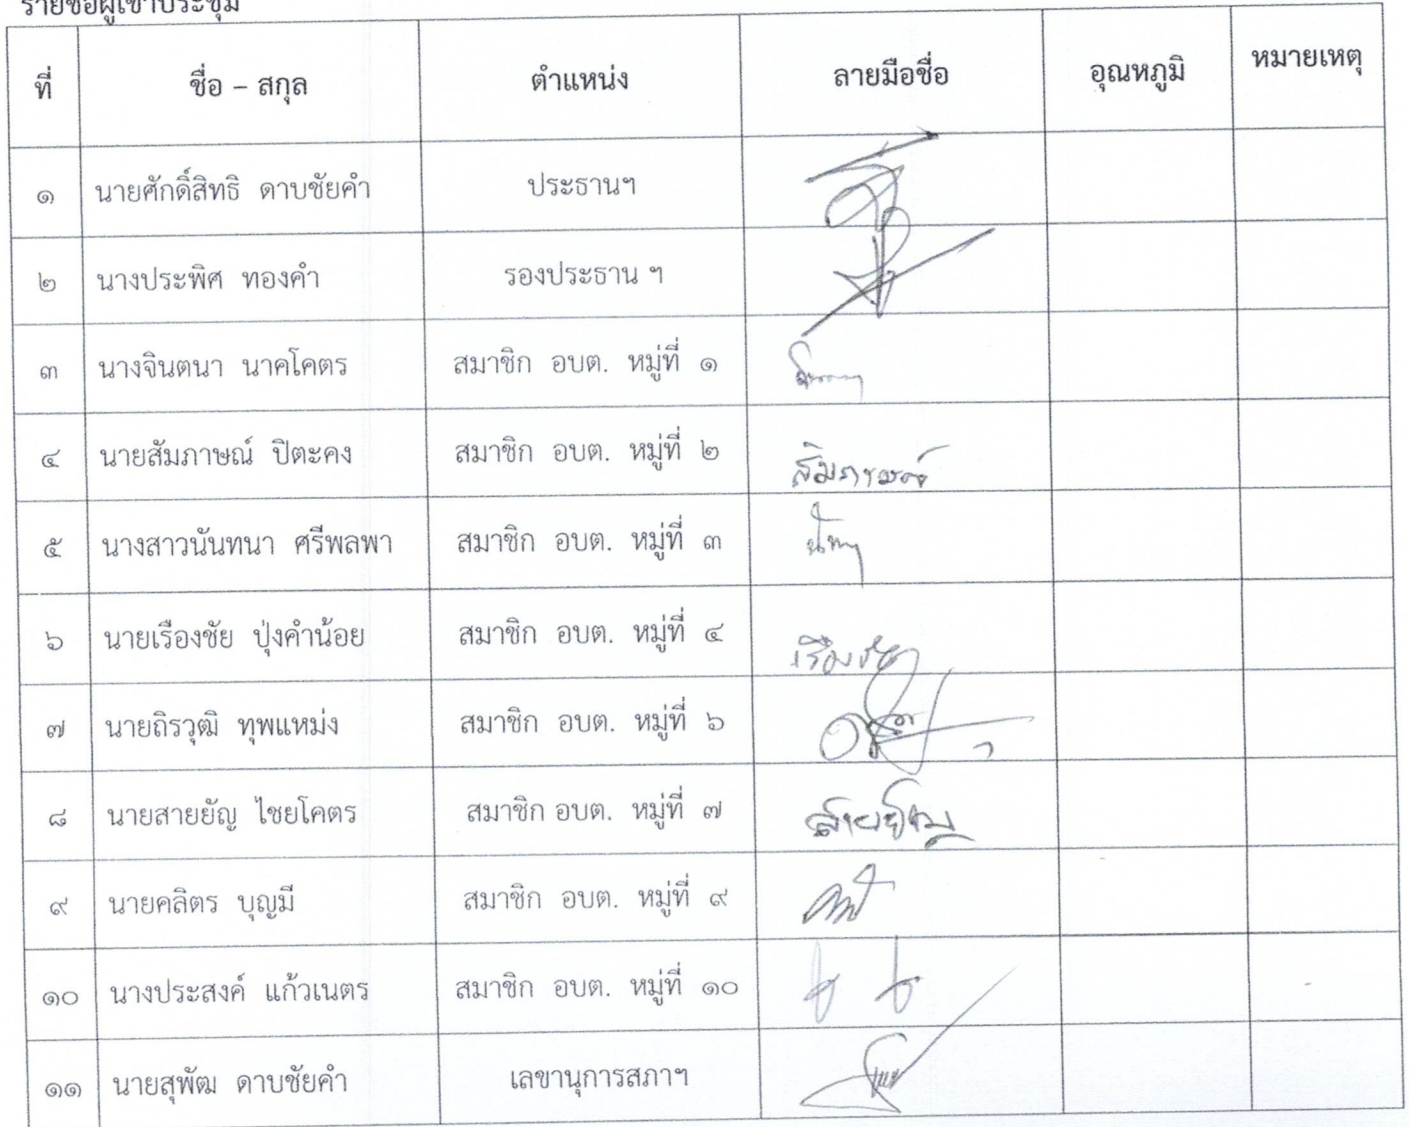 รายชื่อผู้เข้าประชุม
ที่ ชื่อ – สกุล ตำแหน่ง ลายมือชื่อ อุณหภูมิ หมายเหตุ
๑ นายศักดิ์สิทธิ ดาบชัยคำ ประธานฯ
๒ นางประพิศ ทองคำ รองประธาน ฯ
๓ นางจินตนา นาคโคตร สมาชิก อบต. หมู่ที่ ๑
๔ นายสัมภาษณ์ ปิตะคง สมาชิก อบต. หมู่ที่ ๒ สัมภาษณ์
๕ นางสาวนันทนา ศรีพลพา สมาชิก อบต. หมู่ที่ ๓
๖ นายเรืองชัย ปุ่งคำน้อย สมาชิก อบต. หมู่ที่ ๔ เรืองชัย
๗ นายถิรวุฒิ ทุพแหม่ง สมาชิก อบต. หมู่ที่ ๖
๘ นายสายยัญ ไชยโคตร สมาชิก อบต. หมู่ที่ ๗ สายยัญ
๙ นายคลิตร บุญมี สมาชิก อบต. หมู่ที่ ๙
๑๐ นางประสงค์ แก้วเนตร สมาชิก อบต. หมู่ที่ ๑๐
๑๑ นายสุพัฒ ดาบชัยคำ เลขานุการสภาฯ